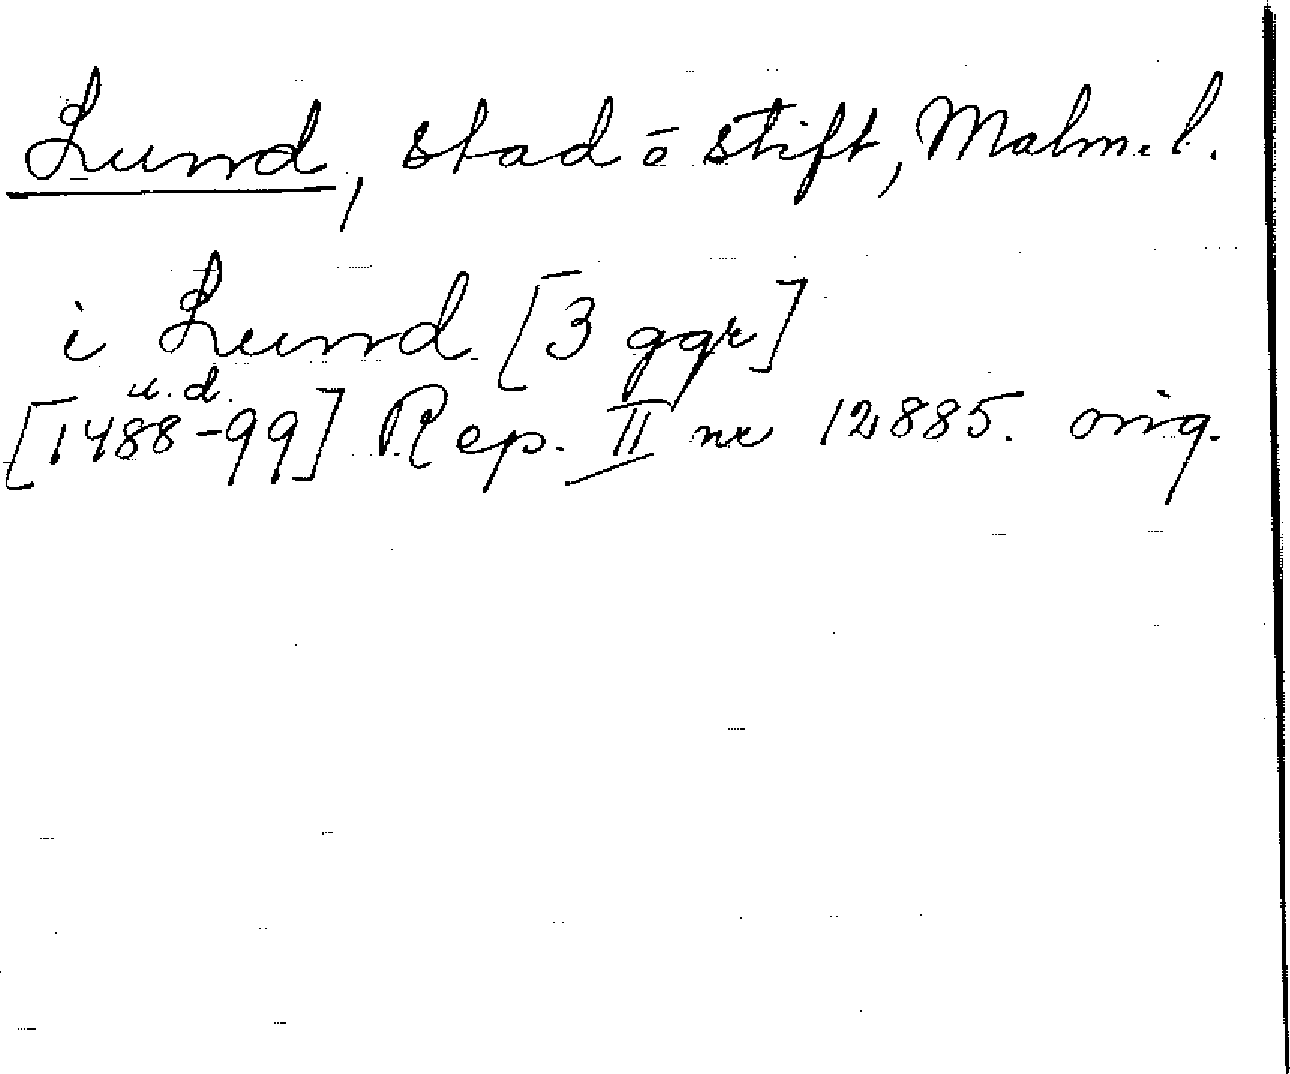 Lund, stad o stift, Malm. l.
i Lund [3 ggr]
u.d.
[1488-99] Rep. II nr 12885. orig.